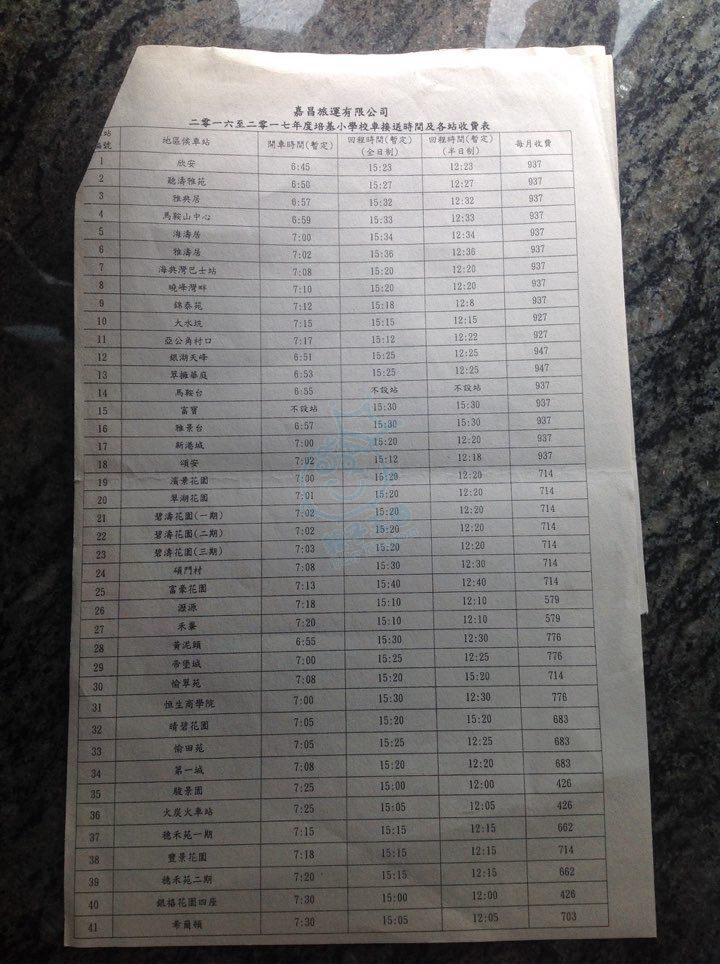 嘉昌旅運有限公司
二零一六至二零一七年度培基小學校車接送時間及各站收費表
站編號 地區候車站 開車時間(暫定) 回程時間(暫定)(全日制) 回程時間(暫定)(半日制) 每月收費
1 欣安 6:45 15:23 12:23 937
2 聽濤雅苑 6:50 15:27 12:27 937
3 雅典居 6:57 15:32 12:32 937
4 馬鞍山中心 6:59 15:33 12:33 937
5 海濤居 7:00 15:34 12:34 937
6 雅濤居 7:02 15:36 12:36 937
7 海典灣巴士站 7:08 15:20 12:20 937
8 曉峰灣畔 7:10 15:20 12:20 937
9 錦泰苑 7:12 15:18 12:8 937
10 大水坑 7:15 15:15 12:15 927
11 亞公角村口 7:17 15:12 12:22 927
12 銀湖天峰 6:51 15:25 12:25 947
13 翠擁華庭 6:53 15:25 12:25 947
14 馬鞍台 6:55 不設站 不設站 937
15 富寶 不設站 15:30 15:30 937
16 雅景台 6:57 15:30 15:30 937
17 新港城 7:00 15:20 12:20 937
18 頌安 7:02 15:12 12:18 937
19 濱景花園 7:00 15:20 12:20 714
20 翠湖花園 7:01 15:20 12:20 714
21 碧濤花園(一期) 7:02 15:20 12:20 714
22 碧濤花園(二期) 7:02 15:20 12:20 714
23 碧濤花園(三期) 7:03 15:20 12:20 714
24 碩門村 7:08 15:30 12:30 714
25 富豪花園 7:13 15:40 12:40 714
26 瀝源 7:18 15:10 12:10 579
27 禾輋 7:20 15:10 12:10 579
28 黃泥頭 6:55 15:30 12:30 776
29 帝堡城 7:00 15:25 12:25 776
30 愉翠苑 7:08 15:20 15:20 714
31 恒生商學院 7:00 15:30 12:30 776
32 晴碧花園 7:05 15:20 15:20 683
33 愉田苑 7:05 15:25 12:25 683
34 第一城 7:08 15:20 12:20 683
35 駿景園 7:25 15:00 12:00 426
36 火炭火車站 7:25 15:05 12:05 426
37 穗禾苑一期 7:15 15:15 12:15 662
38 豐景花園 7:18 15:15 12:15 714
39 穗禾苑二期 7:20 15:15 12:15 662
40 銀禧花園四座 7:30 15:00 12:00 426
41 希爾頓 7:30 15:05 12:05 703